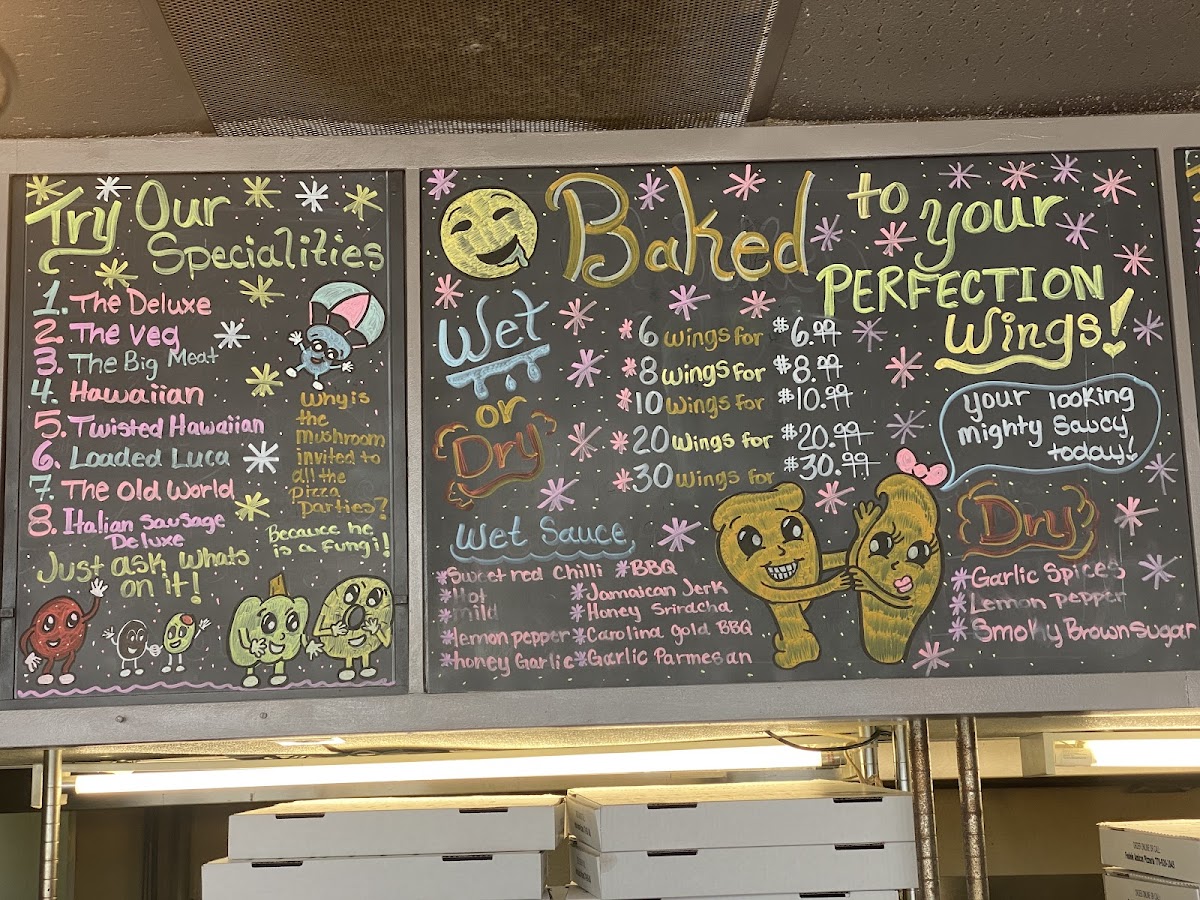 Try Our
Specialities
1. The Deluxe
2. The Veg
3. The Big Meat
4. Hawaiian
5. Twisted Hawaiian
6. Loaded Luca
7. The Old World
8. Italian Sausage
Deluxe
Just ask whats
on it!
Why is
the
mushroom
invited to
all the
pizza
parties?
Because he
is a fungi!
Baked to your
PERFECTION
Wings!
Wet
or
Dry
*6 wings for $6.99
*8 wings for $8.99
*10 wings for $10.99
*20 wings for $20.99
*30 wings for $30.99
your looking
mighty Saucy
today!
Wet Sauce
*Sweet red Chilli *BBQ
*Hot *Jamaican Jerk
*mild *Honey Sriracha
*lemon pepper *Carolina gold BBQ
*honey Garlic *Garlic Parmesan
Dry
*Garlic Spices
*Lemon pepper
*Smoky Brown Sugar
ORDER ONLINE OR CALL: